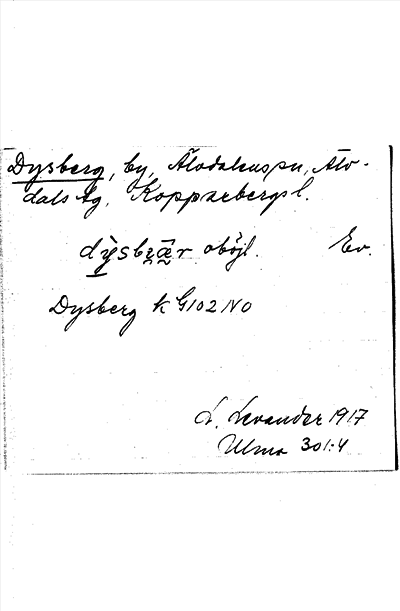 Dysberg, by, Älvdalens sn, Älv-
dals tg, Kopparbergs l.
dỳ̱sbär oböjl. Ev.
Dysberg k G102 NO
L. Levander 1917
Ulma 301:4